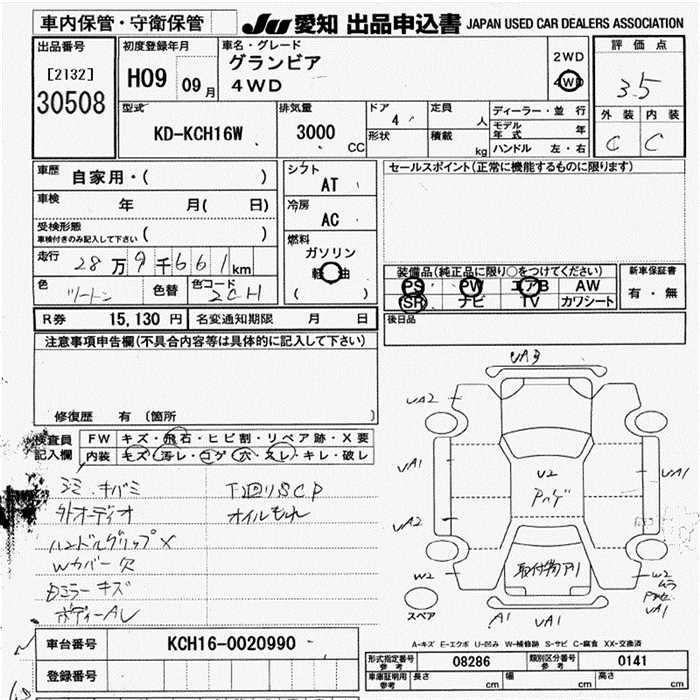 車内保管・守衛保管
JU 愛知 出品申込書 JAPAN USED CAR DEALERS ASSOCIATION
出品番号
[2132]
30508
初度登録年月
H09 09月
車名・グレード
グランビア
4WD
2WD
4WD
評価点
3.5
外装 内装
C C
型式
KD-KCH16W
排気量
3000
CC
ドア
4
形状
定員
人
積載
kg
ディーラー・並行
モデル年式 年
ハンドル 左・右
車歴
自家用・( )
車検
年 月( 日)
受検形態
車検付きのみ記入して下さい ( )
走行
28万9千661km
色
ツートン
色替
色コード
2CH
シフト
AT
冷房
AC
燃料
ガソリン
軽油
( )
セールスポイント(正常に機能するものに限ります)
装備品(純正品に限り○をつけてください)
PS PW エアB AW
SR ナビ TV カワシート
新車保証書
有・無
R券 15,130円 名変通知期限 月 日
後日品
注意事項申告欄(不具合内容等は具体的に記入して下さい)
修復歴 有 (箇所 )
検査員記入欄
FW キズ・飛石・ヒビ割・リペア跡・X要
内装 キズ・汚レ・コゲ・穴・スレ・キレ・破レ
シミ キバミ
外オーディオ
ハンドルグリップ×
Wカバー欠
Dミラーキズ
ボディーAL
下回りSCP
オイルもれ
UA3
UA2
UA1
UA2
W2
スペア
U2
アンテ
取付物アリ
UA1
W2
UA1
A1 UA1
A-キズ E-エクボ U-凹み W-補修跡 S-サビ C-腐食 XX-交換済
車台番号 KCH16-0020990
登録番号
形式指定番号 参考 08286 類別区分番号 参考 0141
車庫証明用 参考 長さ cm 幅 cm 高さ cm